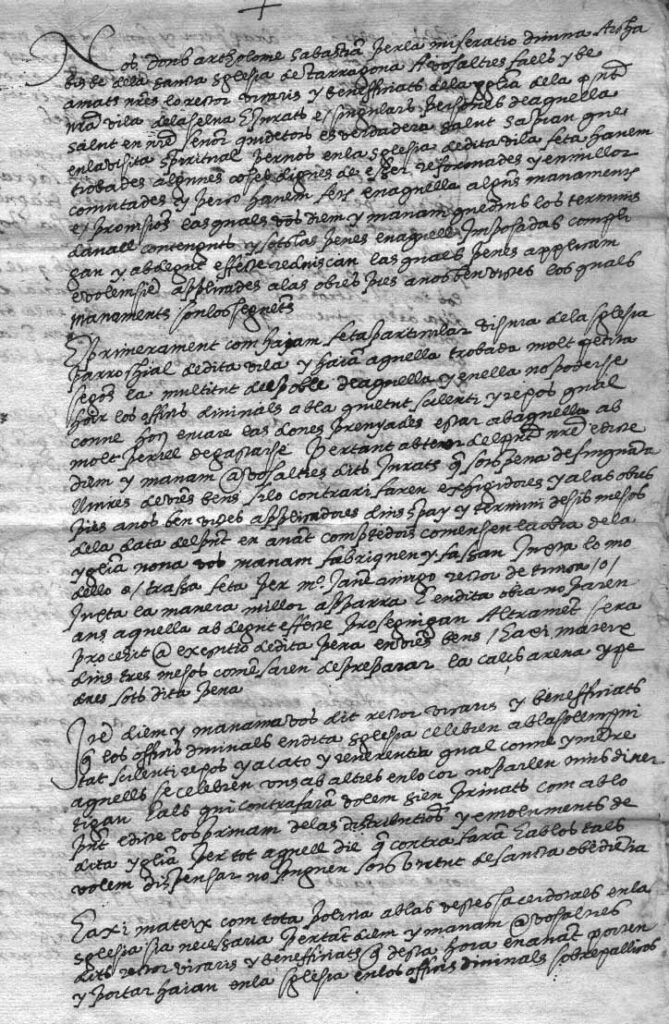 Nos don Bartholome Sabastia per la miseratio divina Archa
bisbe de la Sancta yglesia de Tarragona A vosaltres faels y be
amats nres lo rector vicaris y beneffitiats de la yglia de la pnt
nra vila de la selva E Jurats e singulars persones de aquella
salut en nre senor qui de tots es verdadera salut sapian que
en la visita spiritual per nos en la sglesia de dita vila feta havem
trobades algunes coses dignes de esser reformades y en millor
comutades y perço havem fets en aquella alguns manaments
e provisions las quals vos diem y manam que dins los terminis
davall contenguts y sots las penes en aquell imposadas compli
gan y ab degut effecte reduiscan las quals penes applicam
e volem sie applicades a las obres pies a nos ben vistes los quals
manaments son los seguets
E primerament com hajam feta particular visura de la sglesia
parrochial de dita vila y haiam aquella trobada molt petita
segons la multitut de poble de aquella y en ella no poderse
hoir los officis divinals ab la quietut scilenti y repos qual
conve hoc encare las dones prenyades estar ab aquella ab
molt perill de gastarse Pertant ab tenor del pnt nre edicte
diem y manam @ vosaltres dits Jurats q sots pena de sinquanta
lliures de vres bens si lo contrari faren exhigidores y a las obres
pies a nos ben vistes applicadores dins spay y termini de sis mesos
de la data del pnt en anant comptadors comensen la obra de la
yglia nova vos manam fabriquen y fassan Juxta lo mo
dello o/ trassa feta per mo Jaume amigo rector de tivissa /o/
Juxta la manera millor apparra E en dita obra no paren
ans aquella ab degut effecte proseguigan Altrament sera
procehit @ executio de dita pena en vres bens / E axi mateix
dins tres mesos comensaren de preparar la cals arena y pe
dres sots dita pena
Ite diem y manam a vos dit rector vicaris y beneffitiats
q los officis divinals en dita sglesia celebren ab la solempni
tat scilenti repos y acato y reverentia qual conve y mentre
aquells se celebren uns ab altres en lo cor no parlen nins diver
tigan E als qui contrafaran volem sien privats com ab lo
pnt edicte los privam de las distributios y emoluments de
dita yglia per tot aquell die q contrafaran E ab los tals
volem dispensar no puguen sots virtut de sancta obediencia
E axi mateix com tota policia ab las vestes sacerdotals en la
sglesia sia necessaria pertant diem y manam @ vosaltres
dits rector vicaris y beneffitiats q desta hora en anant porten
y portar haian en la sglesia en los officis divinals sobrepallisos